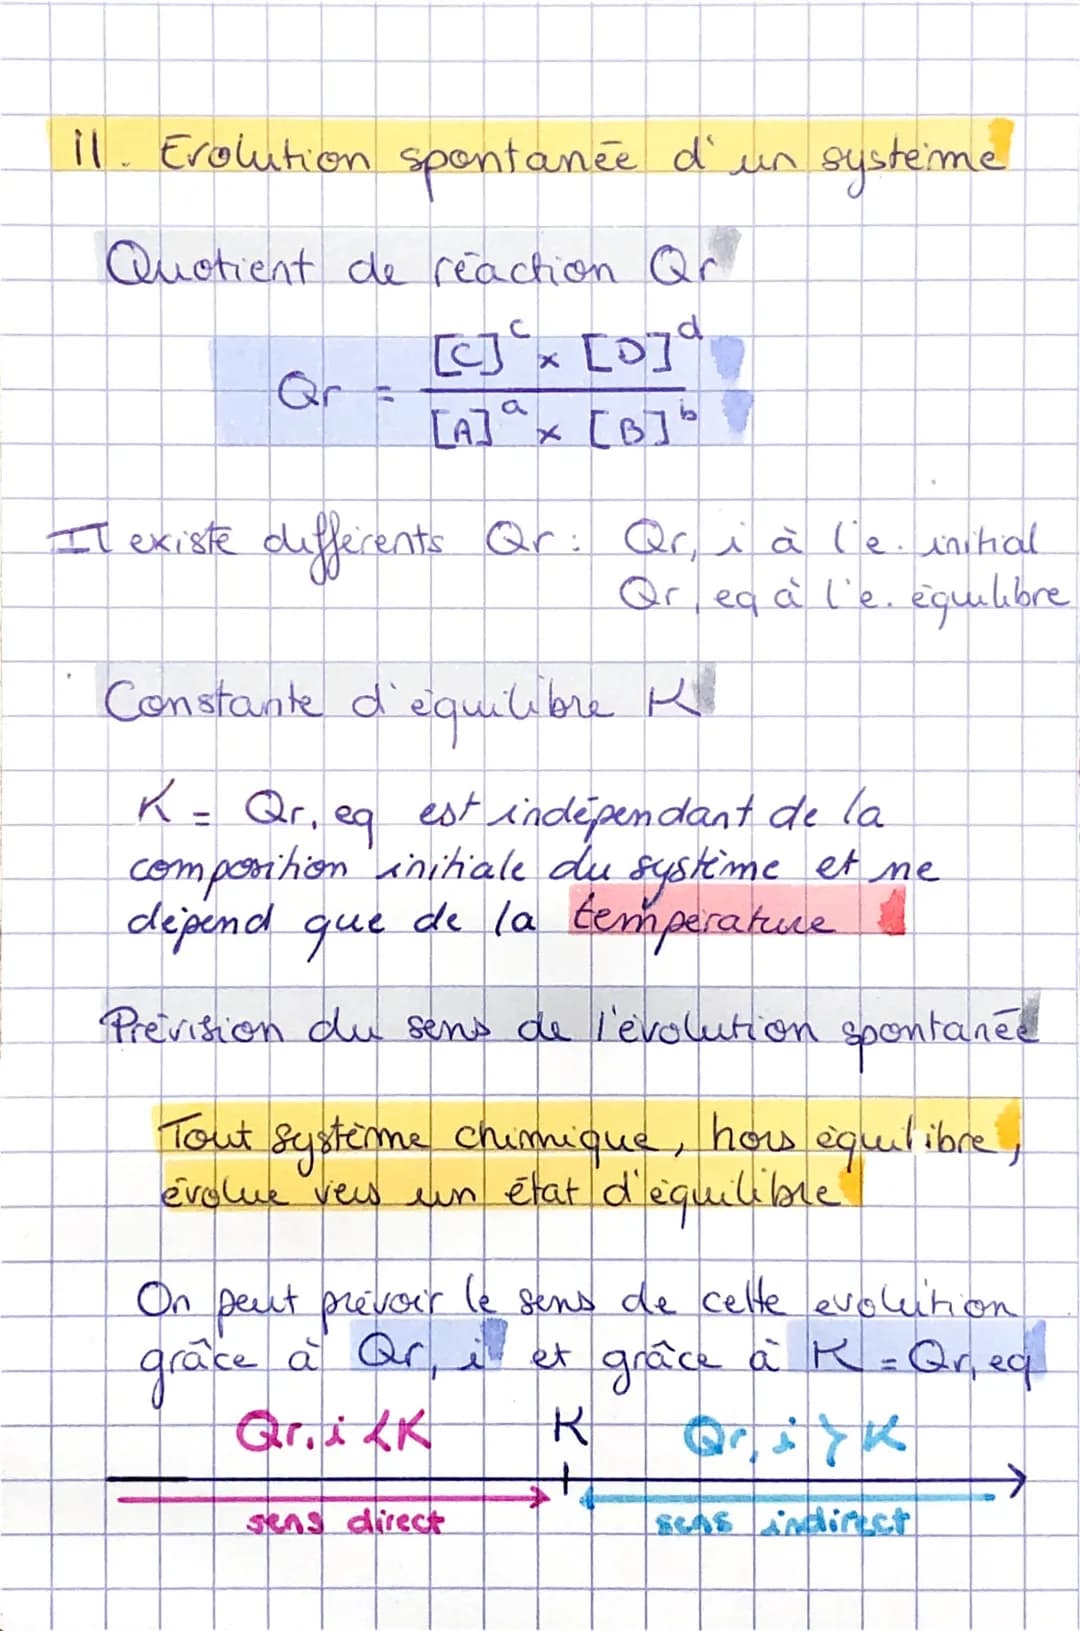 II. Evolution spontanée d'un système
Quotient de réaction Qr
Qr = [C]^c × [D]^d / [A]^a × [B]^b
Il existe différents Qr : Qr, i à l'e. initial
Qr, eq à l'e. équilibre
Constante d'équilibre K
K = Qr, eq est indépendant de la
composition initiale du système et ne
dépend que de la température
Prévision du sens de l'évolution spontanée
Tout système chimique, hors équilibre,
évolue vers un état d'équilibre
On peut prévoir le sens de cette evolution
grâce à Qr, i et grâce à K = Qr, eq
Qr, i < K K Qr, i > K
sens direct sens indirect